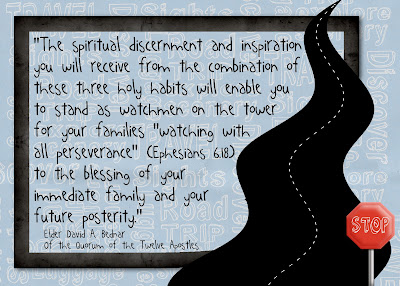 "The spiritual discernment and inspiration
you will receive from the combination of
these three holy habits will enable you
to stand as watchmen on the tower
for your families "watching with
all perseverance" (Ephesians 6:18)
to the blessing of your
immediate family and your
future posterity."
Elder David A. Bednar
Of the Quorum of the Twelve Apostles
STOP